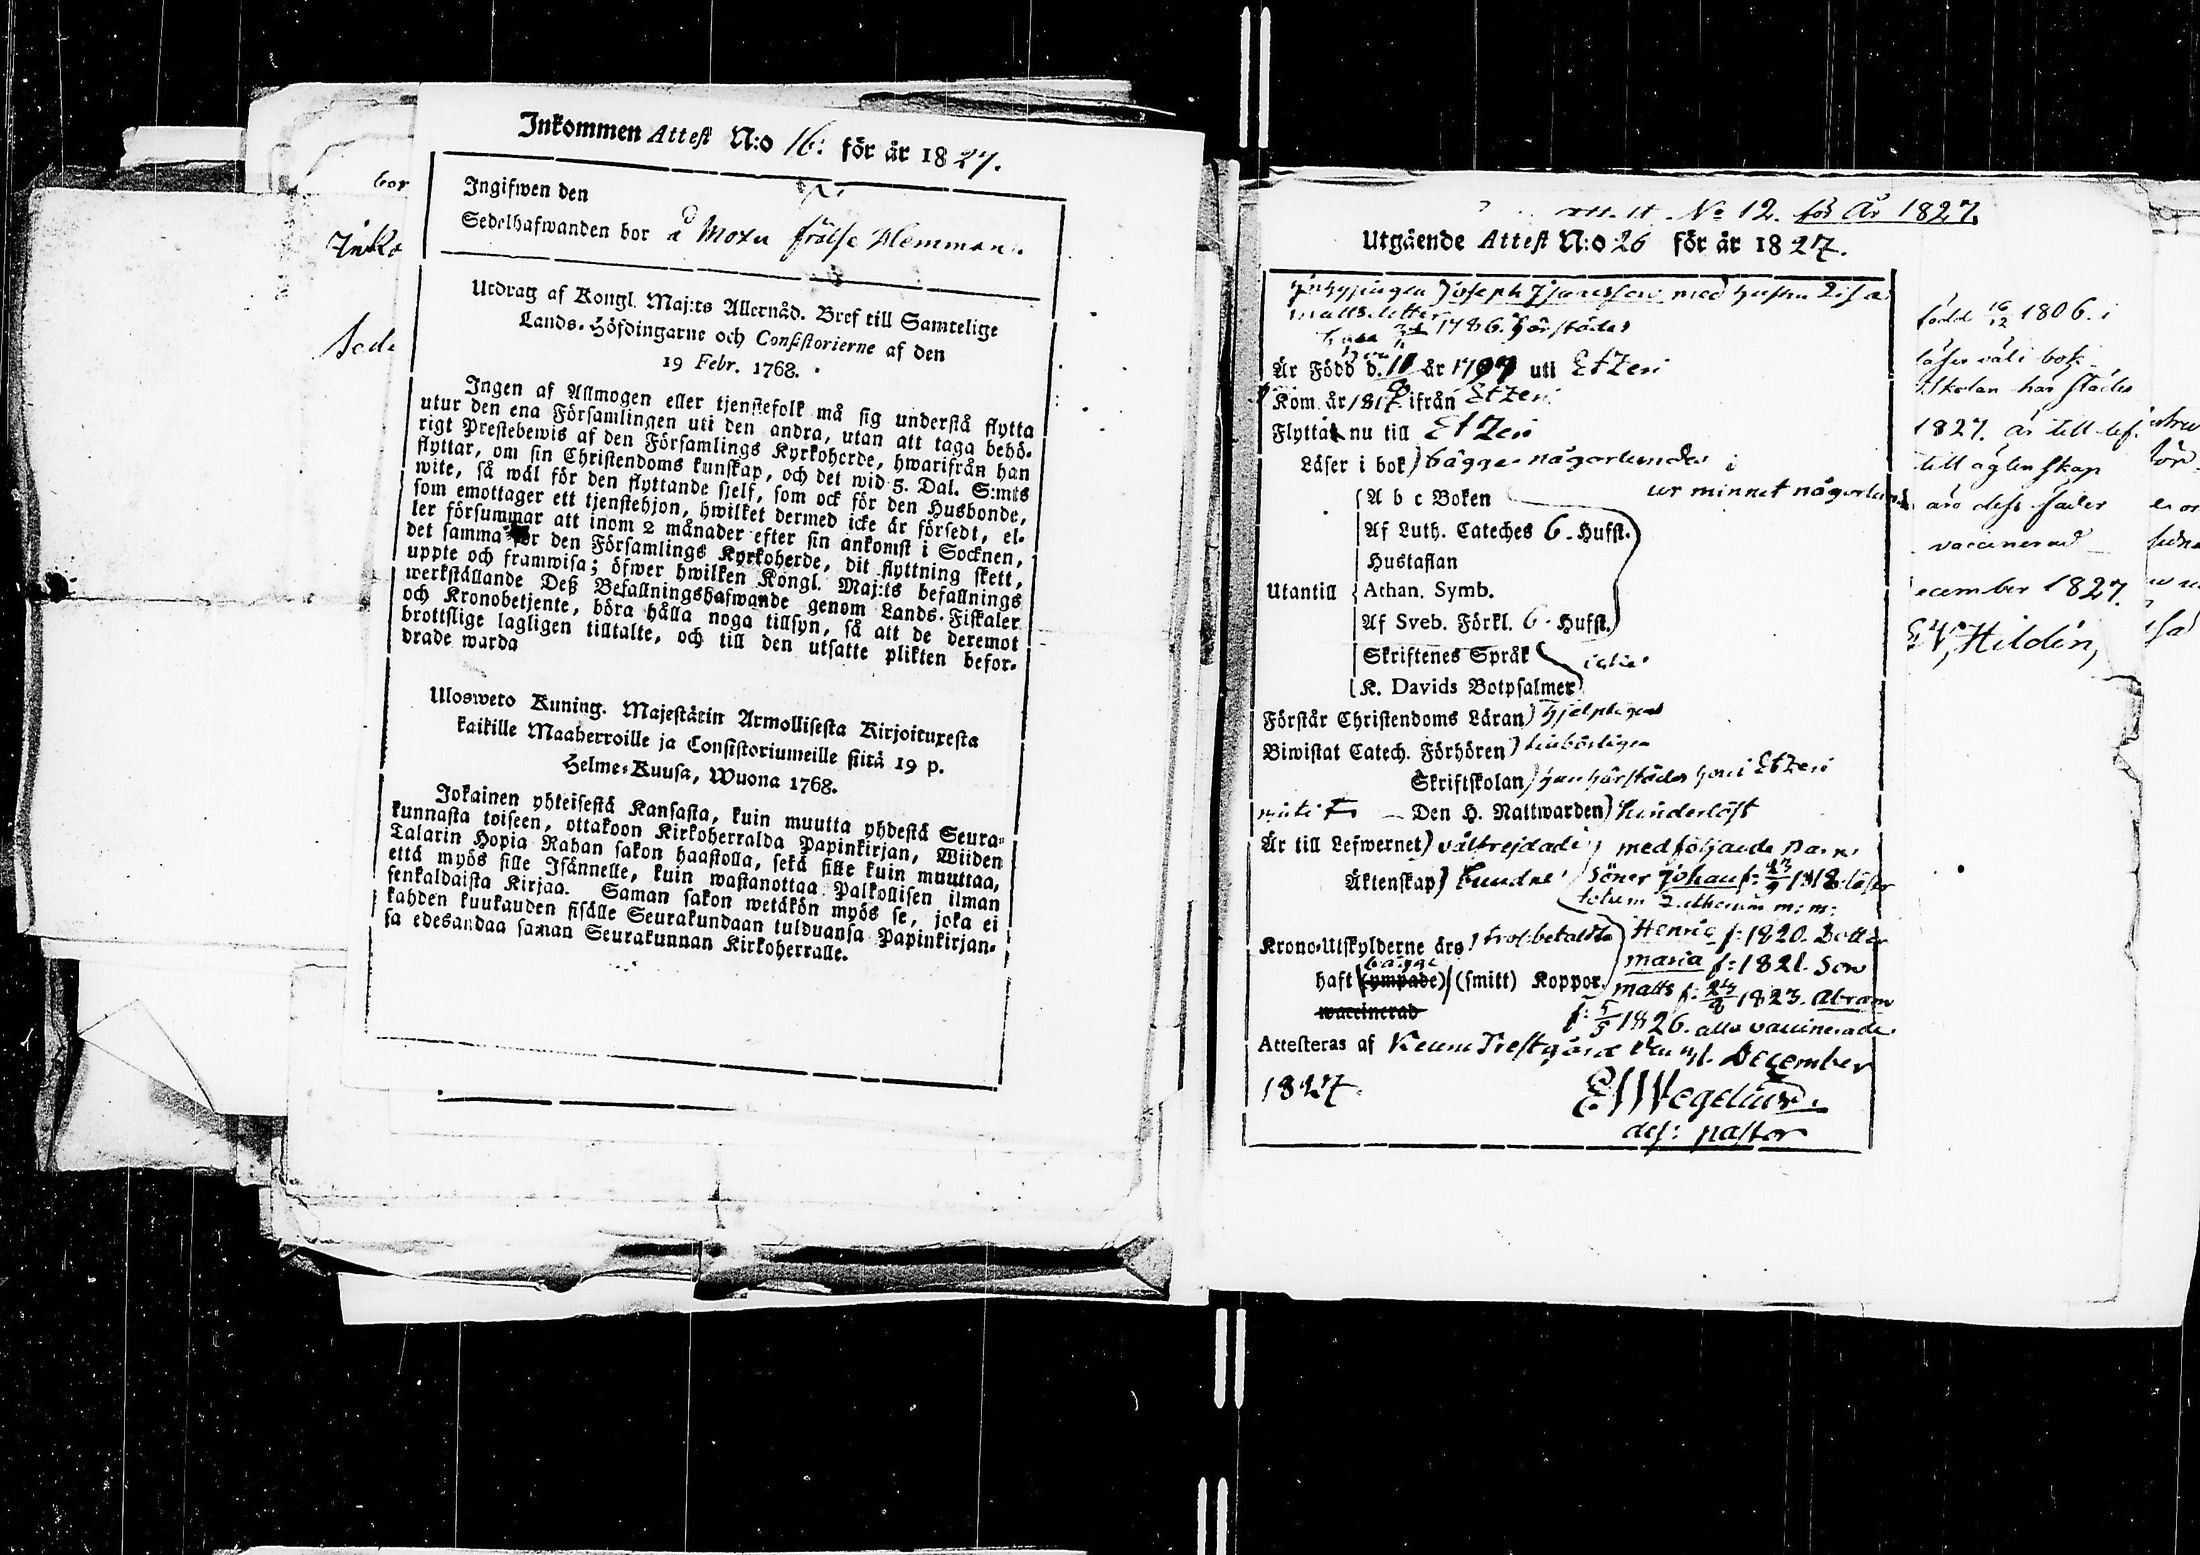 bor
Inko
Sede
Inkommen Attest N:o 16: för år 1827.
Ingifwen den
Sedelhafwanden bor å Moxu frälse Hemman.
Utdrag af Kongl. Maj:ts Allernåd. Bref till Samtelige
Lands-Höfdingarne och Consistorierne af den
19 Febr. 1768.
Ingen af Allmogen eller tjenstefolk må sig understå flytta
utur den ena Församlingen uti den andra, utan att taga behö-
rigt Prestebewis af den Församlings Kyrkoherde, hwarifrån han
flyttar, om sin Christendoms kunskap, och det wid 5. Dal. S:mts
wite, så wäl för den flyttande sielf, som ock för den Husbonde,
som emottager ett tjenstehjon, hwilket dermed icke är försedt, el-
ler försummar att inom 2 månader efter sin ankomst i Socknen,
det samma för den Församlings Kyrkoherde, dit flyttning skett,
uppte och framwisa; öfwer hwilken Kongl. Maj:ts befallnings
werkställande Deß Befallningshafwande genom Lands-Fiskaler
och Kronobetjente, böra hålla noga tillsyn, så att de deremot
brottslige lagligen tilltalte, och till den utsatte plikten befor-
drade warda
Ulosweto Kuning. Majestätin Armollisesta Kirjoituxesta
kaikille Maaherroille ja Consistoriumeille siitä 19 p.
Helme-Kuusa, Wuona 1768.
Jokainen yhteisestä Kansasta, kuin muutta yhdestä Seura-
kunnasta toiseen, ottakoon Kirkoherralda Papinkirjan, Wiiden
Talarin Hopia Rahan sakon haastolla, sekä sille kuin muuttaa,
että myös sille Isännelle, kuin wastanottaa Palkollisen ilman
senkaldaista Kirjaa. Saman sakon wetäkön myös se, joka ei
kahden kuukauden sisälle Seurakundaan tulduansa Papinkirjan-
sa edesandaa saman Seurakunnan Kirkoherralle.
No 12. för År 1827.
Utgående Attest N:o 26 för år 1827.
Inhysingen Joseph med hustru Lisa
Mattsdotter
1786. härstädes
Är Född d. 11 år 1797 uti Etzeri
Kom år 1817 ifrån Etzeri
Flyttat nu till Etzeri
Läser i bok) bägge någorlunda
ur minnet någorlund
A b c Boken
Af Luth. Cateches 6 - Hufst.
Hustaflan
Utantill Athan. Symb.
Af Sveb. Förkl. 6 - Hufst.
Skriftenes Språk icke
K. Davids Botpsalmer
Förstår Christendoms Läran) hjelpligen
Biwistat Catech. Förhören) tillbörligen
Skriftskolan) han härstädes hon i Etzeri
Den H. Nattwarden) hinderlöst
Är till Lefwernet) välfrejdade, med följande Barn:
Äktenskap) bundne Söner Johan f: 23/9 1818 läser
totum Lutherum m: m:
Krono-Utskylderne äro) betalte Henric f: 1820. Dotter
Maria f: 1821. Son
bägge
haft (ympade) (smitt) Koppor. Matts f: 1823. Abram
waccinerad f: 5/5 1826. alla vaccinerade.
Attesteras af Keuru Prestgård den December
1827. E Wegelius.
def: pastor
född 16/12 1806. i
läser väl i bok
skolan har städes
1827. är till lef-
till äktenskap
äro dess fader
vaccinerad
ecember 1827.
Hildén,